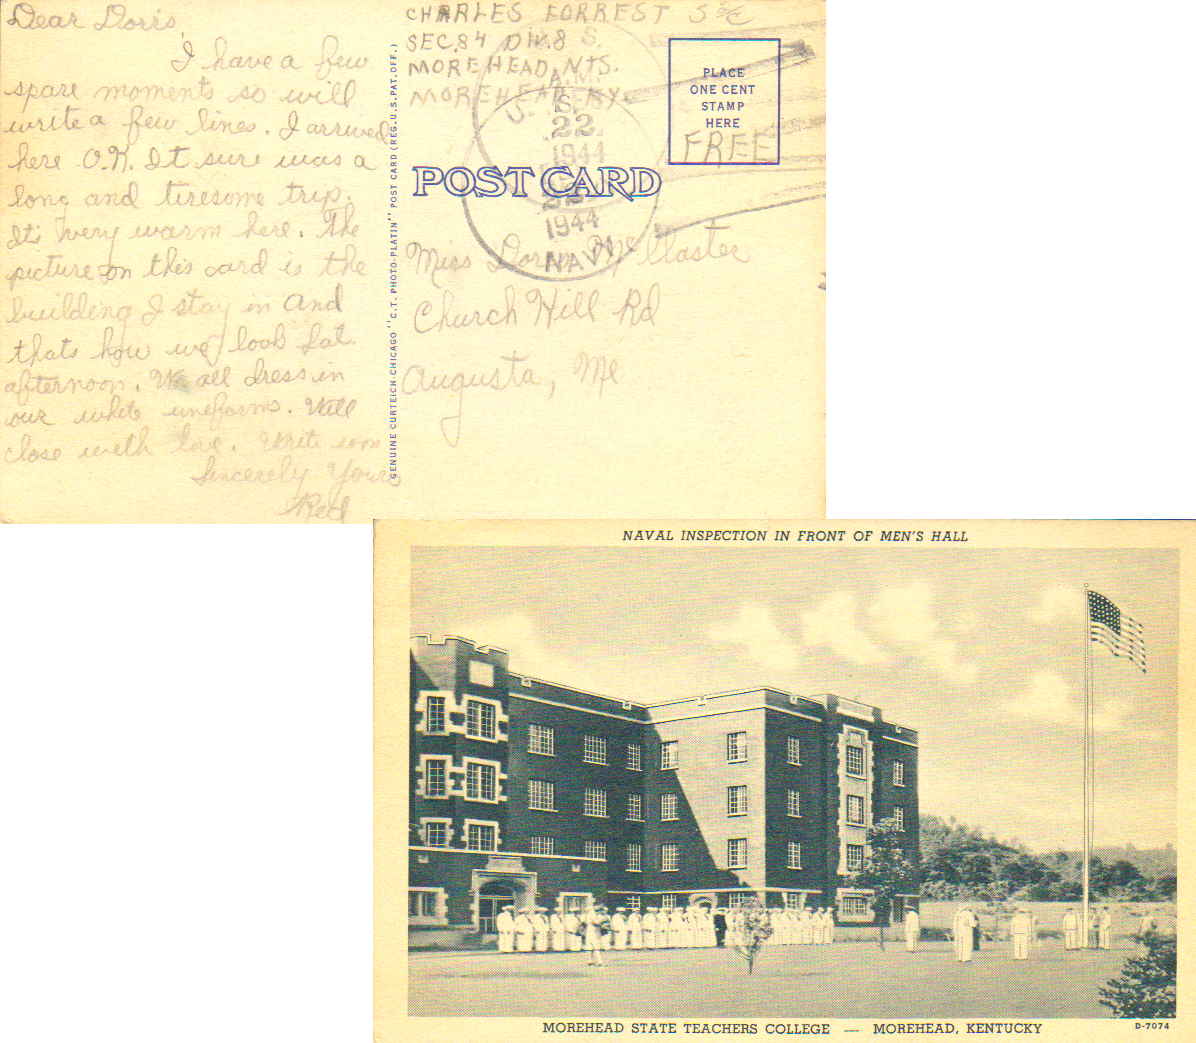 Dear Doris,
I have a few
spare moments so will
write a few lines. I arrived
here O.K. It sure was a
long and tiresome trip.
It's very warm here. The
picture on this card is the
building I stay in and
thats how we look Sat.
afternoon. We all dress in
our white uneforms. Will
close with love. Write soon
Sincerely Yours
Red
GENUINE CURTEICH-CHICAGO "C.T. PHOTO-PLATIN" POST CARD (REG. U.S. PAT. OFF.)
CHARLES FORREST S 2/C
SEC. 84 DIV. 8
MOREHEAD N.T.S.
MOREHEAD, KY.
PLACE
ONE CENT
STAMP
HERE
FREE
U. S.
A.M.
22
1944
U. S.
22
1944
NAVY
POST CARD
Miss Doris
Church Hill Rd
Augusta, Me
NAVAL INSPECTION IN FRONT OF MEN'S HALL
MOREHEAD STATE TEACHERS COLLEGE — MOREHEAD, KENTUCKY
D-7074